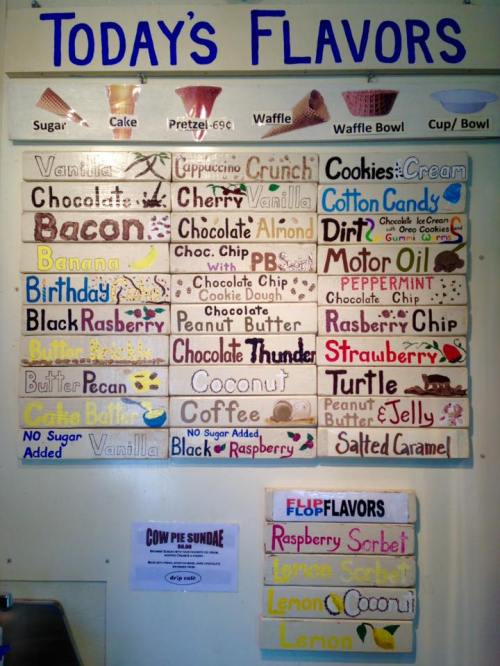 TODAY'S FLAVORS
Sugar
Cake
Pretzel 69¢
Waffle
Waffle Bowl
Cup/ Bowl
Vanilla
Chocolate
Bacon
Banana
Birthday
Black Rasberry
Butter Brickle
Butter Pecan
Cake Batter
NO Sugar
Added Vanilla
Cappuccino Crunch
Cherry Vanilla
Chocolate Almond
Choc. Chip
With PB
Chocolate Chip
Cookie Dough
Chocolate
Peanut Butter
Chocolate Thunder
Coconut
Coffee
NO Sugar Added
Black Raspberry
Cookies Cream
Cotton Candy
Dirt Chocolate Ice Cream
with Oreo Cookies
Gummi Worms
Motor Oil
PEPPERMINT
Chocolate Chip
Rasberry Chip
Strawberry
Turtle
Peanut
Butter & Jelly
Salted Caramel
FLIP
FLOP FLAVORS
Raspberry Sorbet
Lemon Sorbet
Lemon Coconut
Lemon
COW PIE SUNDAE
drip café